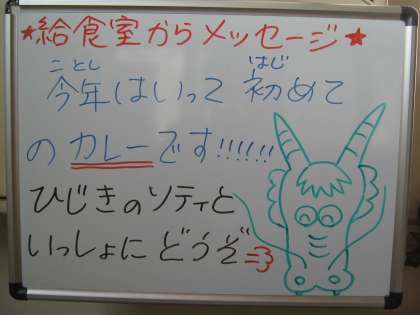 ★給食室からメッセージ★
ことし はじ
今年はいって 初めて
のカレーです!!!!!!
ひじきのソティと
いっしょにどうぞ